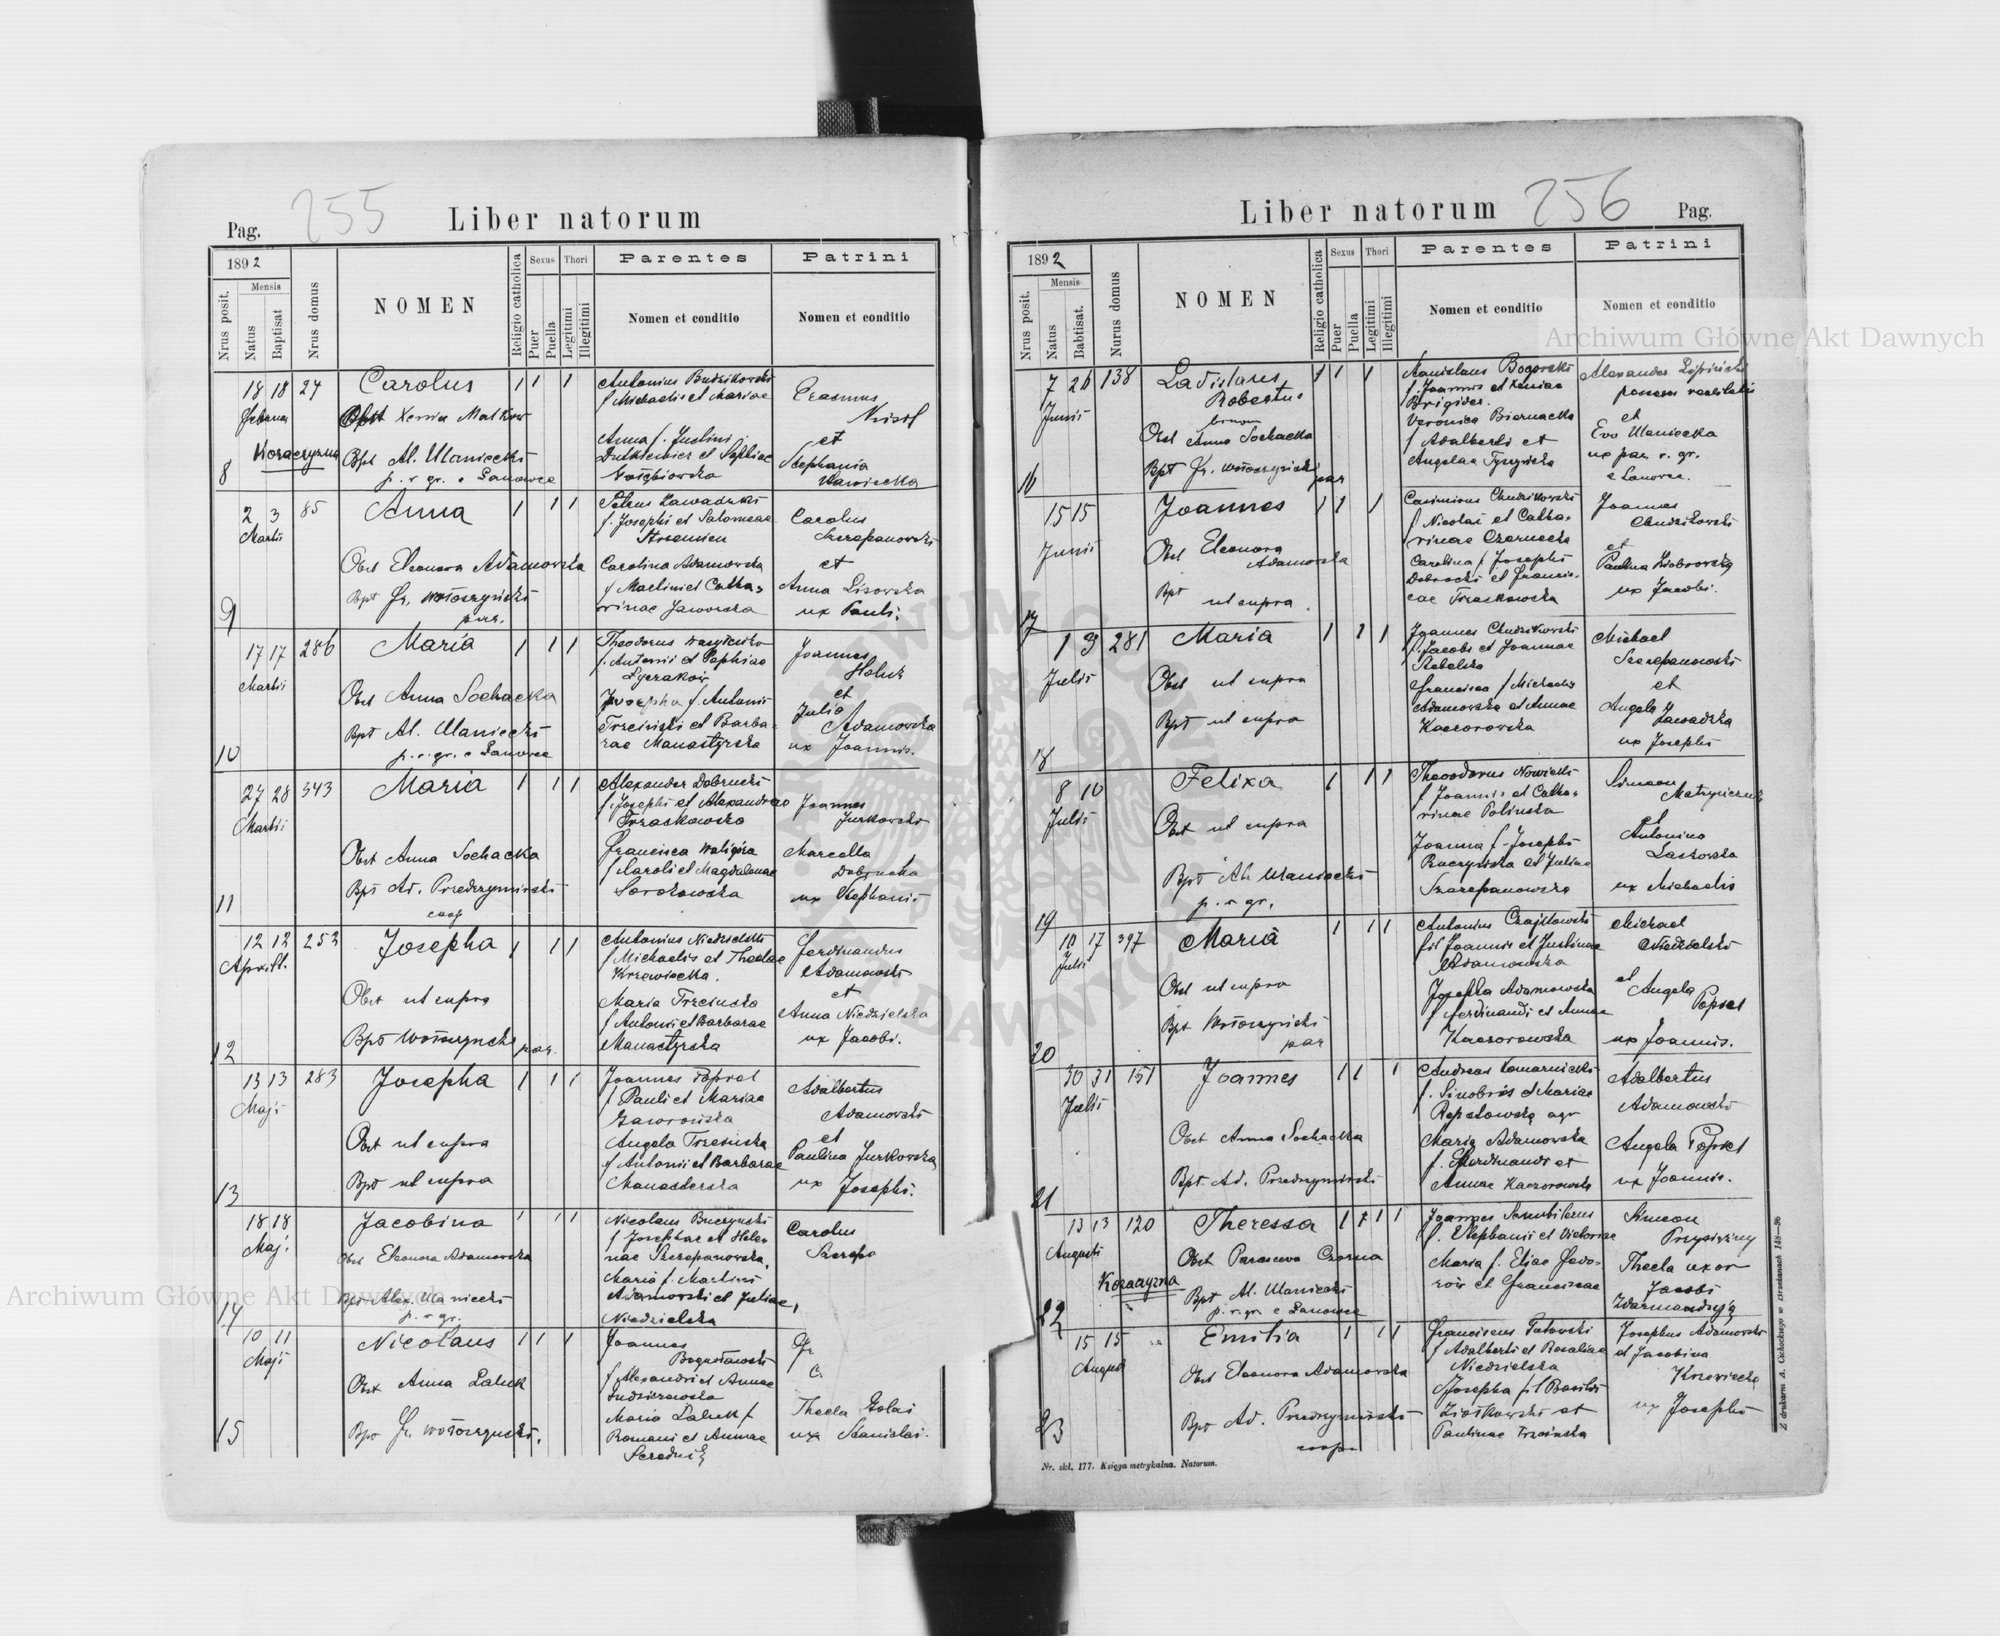 Pag.
255
Liber natorum
1892
Nrus posit.
Mensis
Natus
Baptisat
Nrus domus
NOMEN
Religio catholica
Sexus
Puer
Puella
Thori
Legitimi
Illegitimi
Parentes
Nomen et conditio
Patrini
Nomen et conditio
8
18 18 24
Carolus
1 1 1
Antonius Budzikowski
f Michaelis et Mariae
Anna f. Justini
Erasmus
et
Stephania
Obst Xenia Matkow
Bpt Al. Ulaniecki
p. r gr. e Lanowce
9
2 3 85
Martii
Anna
1 1 1
Petrus Zawadzki
f. Josephi et Salomeae
Carolina Adamowska
f Martini et Catha=
rinae Jaworska
Carolus
Szczepanowski
et
Anna Lisowska
ux Pauli.
Obst Eleonora Adamowska
Bpt Fr. Wołoszyński
par.
10
17 17 286
Martii
Maria
1 1 1
f. Antonii et Sophiae
Josepha f. Antonii
Trzciński et Barba=
rae Manastyrska
Joannes
et
Julia
Adamowska
ux Joannis.
Obst Anna Sochacka
Bpt Al. Ulaniecki
p. r. gr. e Lanowce
11
27 28 343
Martii
Maria
1 1 1
Alexander Dobrucki
f. Josephi et Alexandrae
Trzaskowska
Francisca Waligóra
f Caroli et Magdalenae
Sorokowska
Joannes
Jurkowski
Marcella
Dobrucka
ux Stephanii
Obst Anna Sochacka
Bpt Ad. Przedrzymirski
coop
12
12 12 252
Aprili.
Josepha
1 1 1
Antonius Niedzielski
f Michaelis et Theclae
Krzewiecka.
Maria Trzcinska
f Antonii et Barbarae
Manastyrska
Ferdinandus
Adamowski
et
Anna Niedzielska
ux Jacobi.
Obst ut supra
Bpt Wołoszynski par.
13
13 13 283
Maji
Josepha
1 1 1
Joannes Popiel
f Pauli et Mariae
Angela Trzcinska
f Antonii et Barbarae
Manasterska
Adalbertus
Adamowski
et
Paulina Jurkowska
ux Josephi.
Obst ut supra
Bpt ut supra
14
18 18
Maj.
Jacobina
1 1 1
Nicolaus Buczynski
f Josephae et Hele=
nae Szczepanowska,
Maria f. Martini
Adamowski et Juliae,
Niedzielska
Carolus
Szczepa
Obst Eleonora Adamowska
Bpt Alex. Ulaniecki
p. r gr.
15
10 11
Maji
Nicolaus
1 1 1
Joannes
Bogusławski
f Alexandri et Annae
Maria Laluk f
Romani et Annae
Fr
C.
Thecla
ux Stanislai.
Obst Anna Laluk
Bpt Fr. Wołoszynski.
Liber natorum
256
Pag.
1892
Nrus posit.
Mensis
Natus
Babtisat.
Nurus domus
NOMEN
Religio catholica
Sexus
Puer
Puella
Thori
Legitimi
Illegitimi
Parentes
Nomen et conditio
Patrini
Nomen et conditio
16
7 26 138
Junii
Ladislaus
Robertus
1 1 1
Stanislaus Bogorski
f. Joannis et Xeniae
Veronica Biernacka
f Adalberti et
Angelae
Alexander
et
Eva Ulaniecka
ux par. r. gr.
e Lanowce.
Obst Anna Sochacka
Bpt Fr. Wołoszyński
par
17
15 15
Junii
Joannes
1 1 1
Casimirus Chudzikowski
f Nicolai et Catha=
rinae Czarnecka
Carolina f Josephi
Dobrocki et Francis=
cae Trzaskowska
Joannes
Chudzikowski
et
Paulina
ux Jacobi.
Obst Eleonora
Adamowska
Bpt ut supra.
18
1 3 281
Julii
Maria
1 1 1
Joannes Chudzikowski
f. Jacobi et Joannae
Francisca f Michaelis
Adamowska et Annae
Kaczorowska
Michael
Szczepanowski
et
Angela
Zawadzka
ux Josephi
Obst ut supra
Bpt ut supra
19
8 10
Julii
Felixa
1 1 1
Theodorus Nowicki
f Joannis et Catha=
rinae Polinska
Joanna f. Josephi
Buczynska et Juliae
Szczepanowska
Simeon
et
Antonina
Laskowska
ux Michaelis
Obst ut supra
Bpt Al. Ulaniecki
p. r gr.
20
10 17 397
Julii
Maria
1 1 1
Antonius Czajkowski
fil Joannis et Justinae
Adamowska
Josepha Adamowska
f Ferdinandi et Annae
Kaczorowska
Michael
Niedzielski
et
Angela
Popiel
ux Joannis.
Obst ut supra
Bpt Wołoszyński
par
21
30 31 151
Julii
Joannes
1 1 1
Andreas Komarnicki
et Mariae
Maria Adamowska
f. Ferdinandi et
Annae Kaczorowska
Adalbertus
Adamowski
Angela Popiel
ux Joannis.
Obst Anna Sochacka
Bpt Ad. Przedrzymirski
22
13 13 120
Augusti
Theressa
1 1 1 1
Joannes
f. Stephanii et Victoriae
Maria f. Eliae
et Franciscae
Simeon
Thecla uxor
Jacobi
Obst Parasceva Czorna
Bpt Al. Ulaniecki
p. r. gr. e Lanowce
23
15 15
August
Emilia
1 1 1
Franciscus
f Adalberti et Rosaliae
Niedzielska
Josepha fil Basilii
et
Paulinae Trzcinska
Josephus Adamowski
et Jacobina
Krzewiecka
ux Josephi
Obst Eleonora Adamowska
Bpt Ad. Przedrzymirski
coop
Nr. skł. 177. Księga metrykalna. Natorum.
Z drukarni A. Cichockiego w Brzeżanach 148—96
Archiwum Główne Akt Dawnych
Archiwum Główne Akt Dawnych